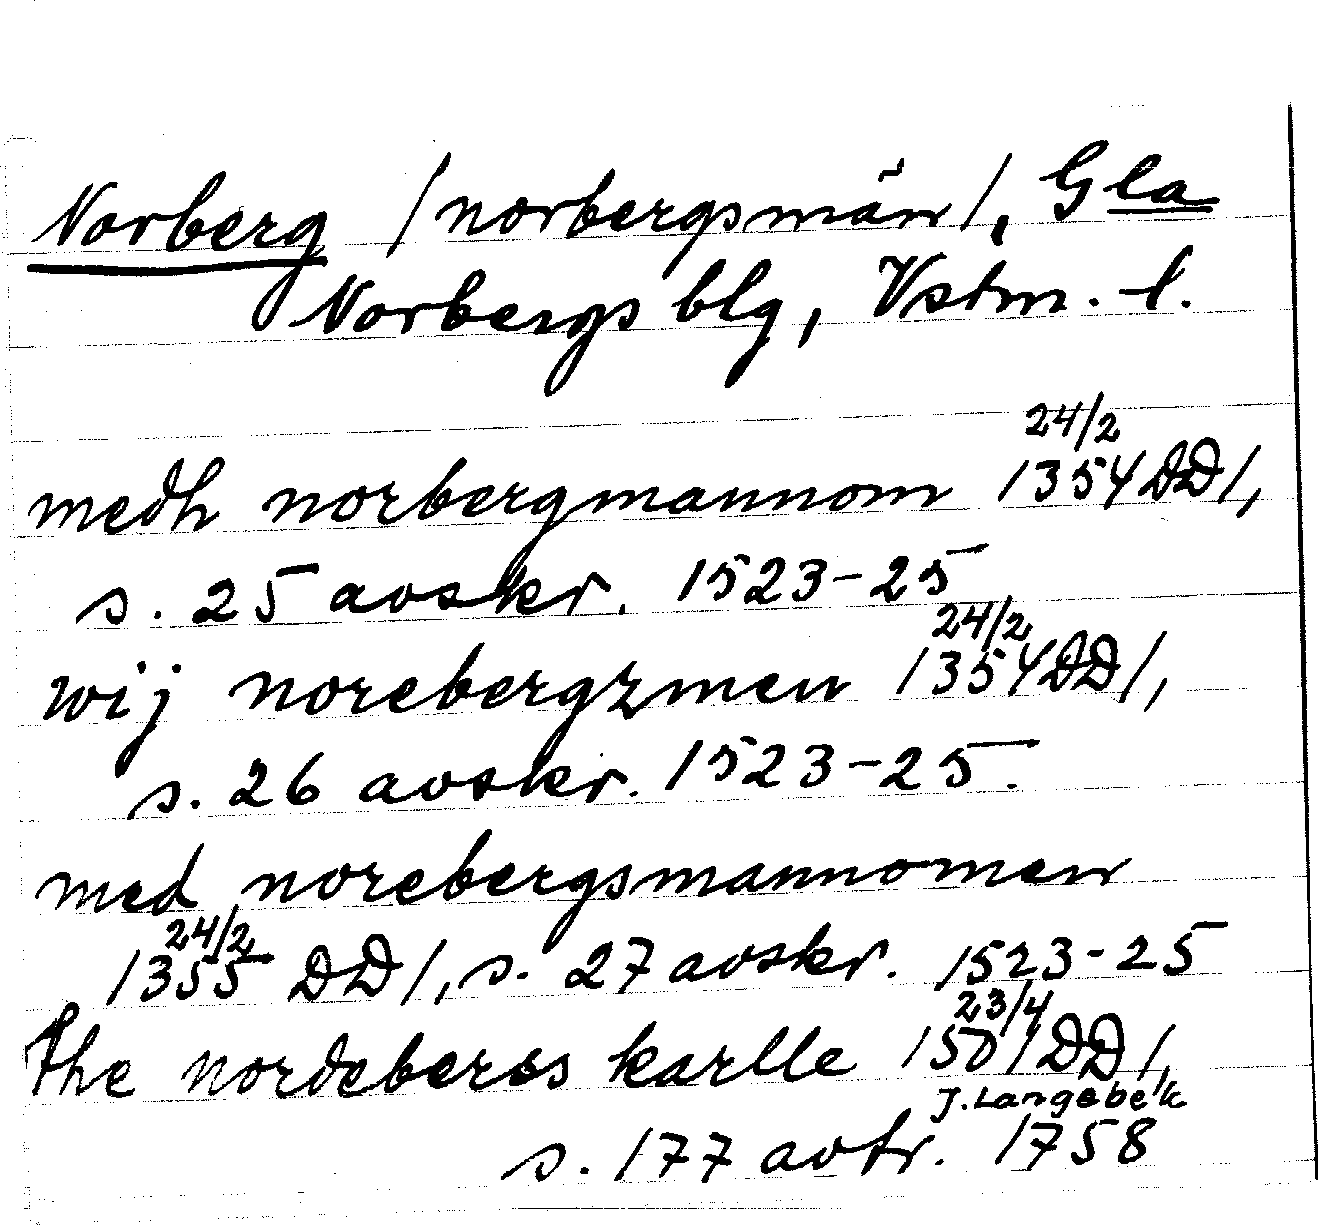 Norberg /norbergsmän/, Gla
Norbergs blg, Vstm. l.
24/2
medh norbergmannom /1354 DD/,
s. 25 avskr. 1523-25
24/2
wij norebergzmen /1354 DD/,
s. 26 avskr. 1523-25.
med norebergsmannomen
24/2
/1355 DD/, s. 27 avskr. 1523-25
23/4
the nordeberss karlle /1501 DD/,
J. Langebek
s. 177 avtr. 1758